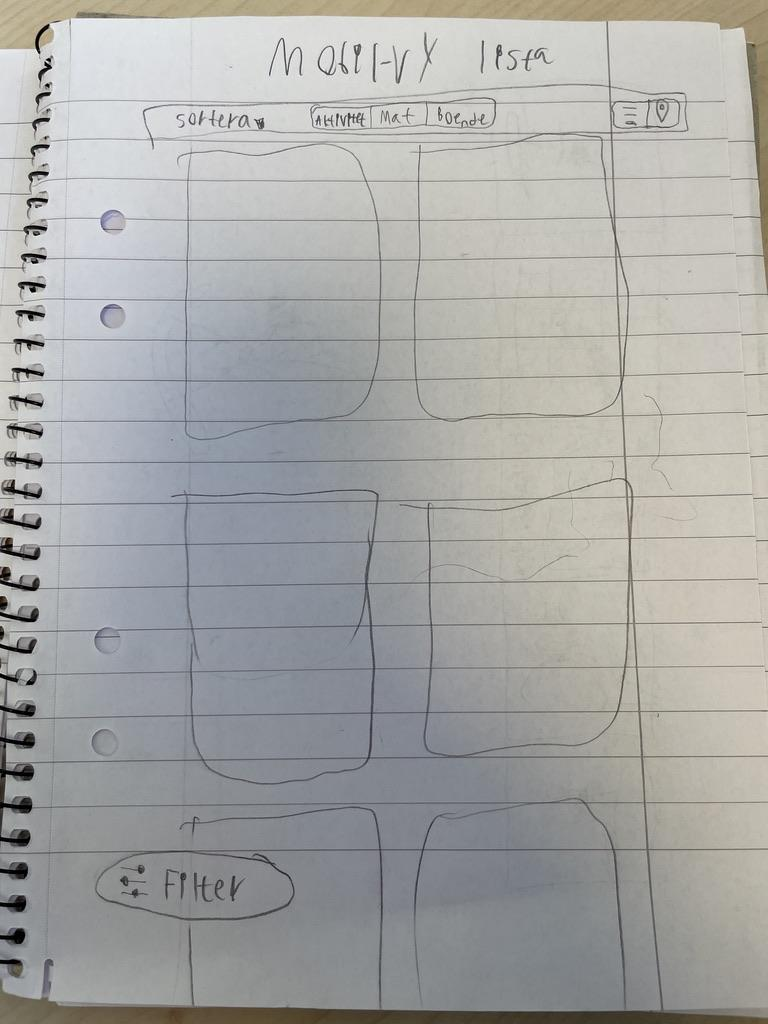 Mobil-vy lista
sortera Aktivitet Mat Boende
Filter